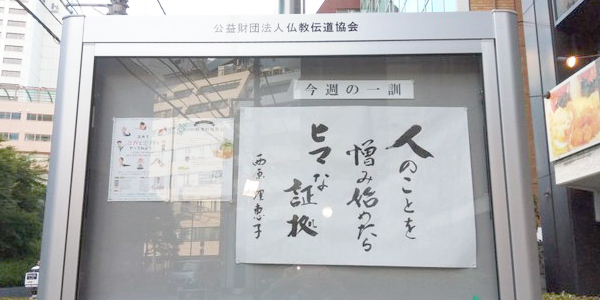 公益財団法人仏教伝道協会
今週の一訓
人のことを
憎み始めたら
ヒマな証拠
西原理恵子